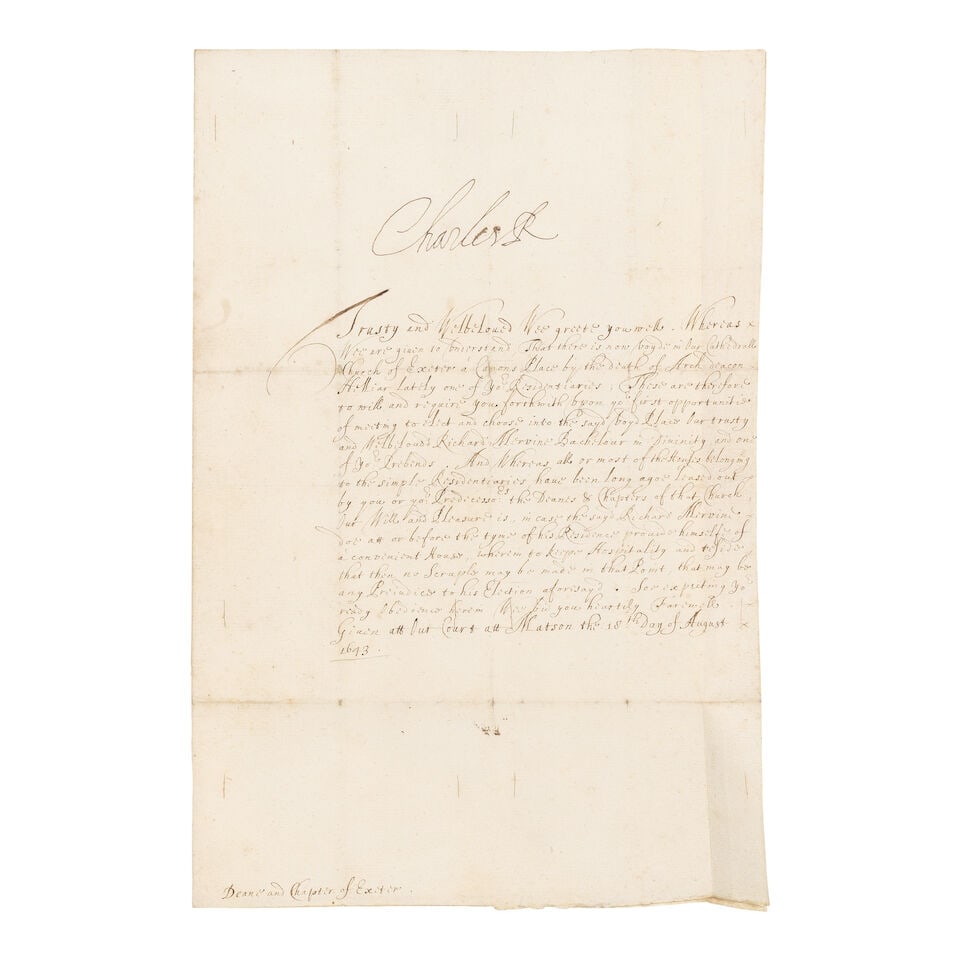 Charles R
Trusty and Welbeloved Wee greete you well. Whereas
Wee are given to understand, That there is now voyde in Our Cathedrall
Church of Exeter a Canons Place by the death of Arch deacon
Helliar lately one of yor Residentiaries, These are therefore
to will and require you forthwith upon ye first opportunitie
of meeting to elect and choose into the sayd voyd Place Our trusty
and Welbeloved Richard Mervine Bachelour in Divinity and one
of yor Prebends. And Whereas all or most of the Houses belonging
to the simple Residentiaries have been long agoe leased out
by you or yor Predecessors the Deanes & Chapters of that Church,
Our Will and Pleasure is, in case the sayd Richard Mervine
doe att or before the tyme of his Residence provide himselfe of
a convenient House, wherein to keepe Hospitality and reside
that then no Scruple may be made in that Point, that may be
any Prejudice to his Election aforesayd. Soe expecting Yor
ready Obedience herein Wee bid you heartily Farewell.
Given att Our Court att Matson the 18th Day of August
1643.
Deane and Chapter of Exeter.